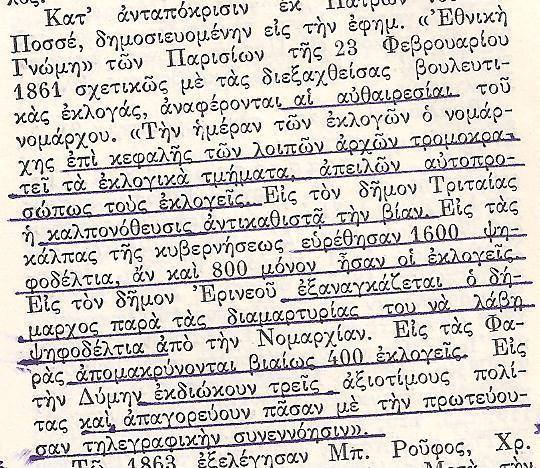 Κατ' ἀνταπόκρισιν ἐκ Πατρῶν
Ποσσέ, δημοσιευομένην εἰς τὴν ἐφημ. «Ἐθνικὴ
Γνώμη» τῶν Παρισίων τῆς 23 Φεβρουαρίου
1861 σχετικῶς μὲ τὰς διεξαχθείσας βουλευτι-
κὰς ἐκλογάς, ἀναφέρονται αἱ αὐθαιρεσίαι τοῦ
νομάρχου. «Τὴν ἡμέραν τῶν ἐκλογῶν ὁ νομάρ-
χης ἐπὶ κεφαλῆς τῶν λοιπῶν ἀρχῶν τρομοκρα-
τεῖ τὰ ἐκλογικὰ τμήματα, ἀπειλῶν αὐτοπρο-
σώπως τοὺς ἐκλογεῖς. Εἰς τὸν δῆμον Τριταίας
ἡ καλπονόθευσις ἀντικαθιστᾷ τὴν βίαν. Εἰς τὰς
κάλπας τῆς κυβερνήσεως εὑρέθησαν 1600 ψη-
φοδέλτια, ἂν καὶ 800 μόνον ἦσαν οἱ ἐκλογεῖς.
Εἰς τὸν δῆμον Ἐρινεοῦ ἐξαναγκάζεται ὁ δή-
μαρχος παρὰ τὰς διαμαρτυρίας του νὰ λάβῃ
ψηφοδέλτια ἀπὸ τὴν Νομαρχίαν. Εἰς τὰς Φα-
ρὰς ἀπομακρύνονται βιαίως 400 ἐκλογεῖς. Εἰς
τὴν Δύμην ἐκδιώκουν τρεῖς ἀξιοτίμους πολί-
τας καὶ ἀπαγορεύουν πᾶσαν μὲ τὴν πρωτεύου-
σαν τηλεγραφικὴν συνεννόησιν».
Τῷ 1863 ἐξελέγησαν Μπ. Ροῦφος, Χρ.